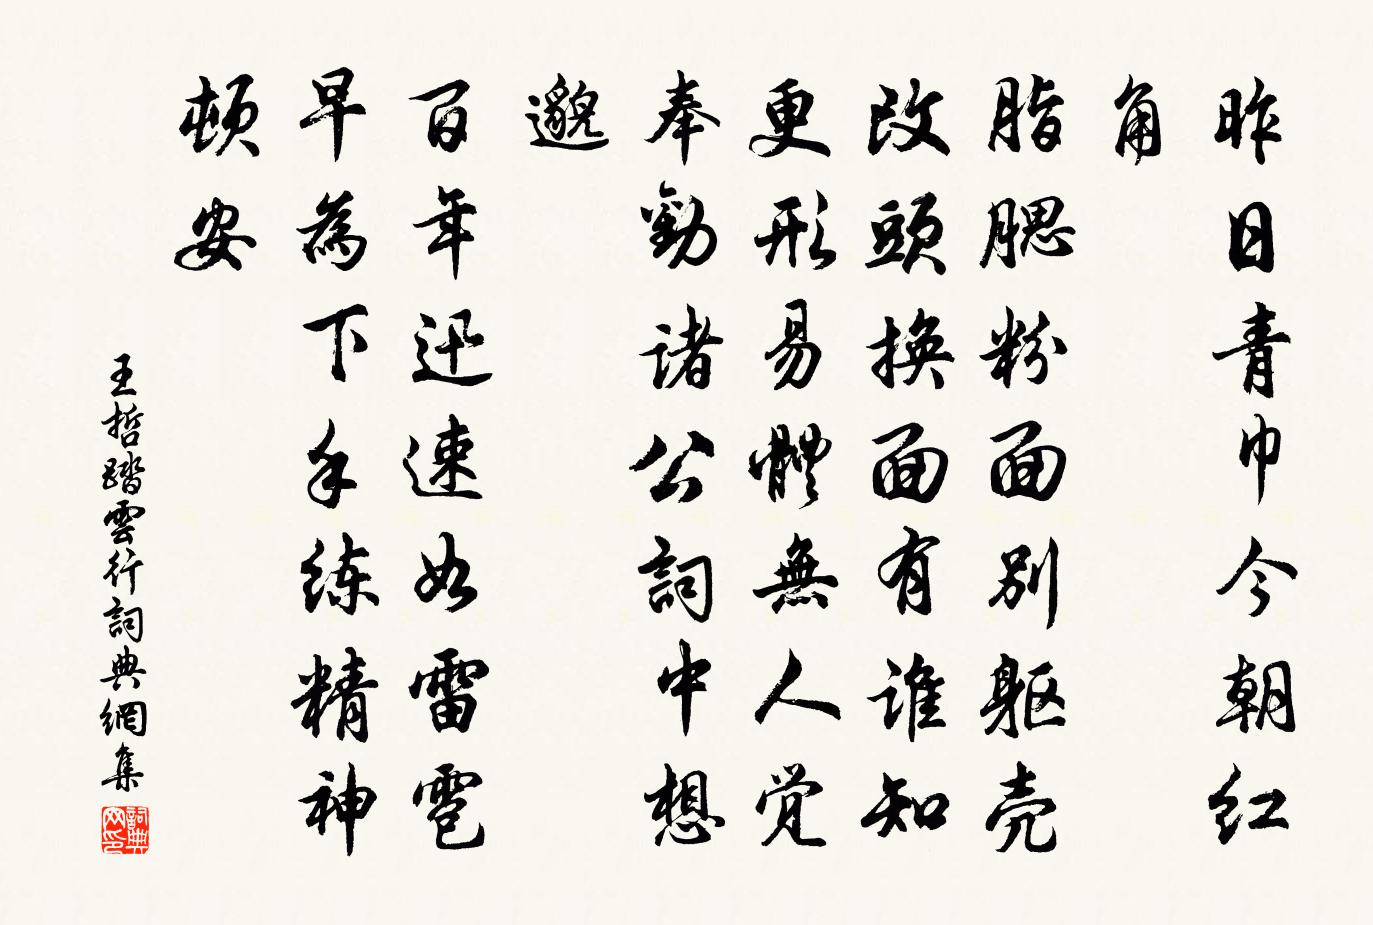 昨日青巾今朝红
角
脂腮粉面别躯壳
改頭换面有谁知
更形易體無人觉
奉勸诸公詞中想
邈
百年迅速如雷雹
早為下手练精神
頓安
王哲踏雲行詞典網集
詞典网印